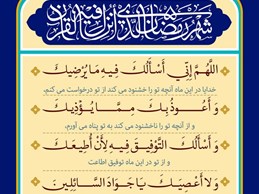 شهر رمضان الذي أنزل فيه القرآن
اللهم إني أسألك فيه ما يرضيك
خدایا در این ماه آنچه تو را خشنود می کند از تو درخواست می کنم،
و أعوذ بك مما يؤذيك
و از آنچه تو را ناخشنود می کند به تو پناه می آورم،
و أسألك التوفيق فيه لأن أطيعك
و از تو در این ماه توفیق اطاعت
ولا أعصيك يا جواد السائلين